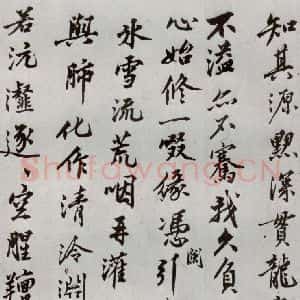 知其源默深貫龍
不溢亦不騫我久負
心始修一啜緣憑引
氷雪流荒咽再灌
與肺化作清泠淵
若沆瀣逐空醒羶
Shufawang.CN